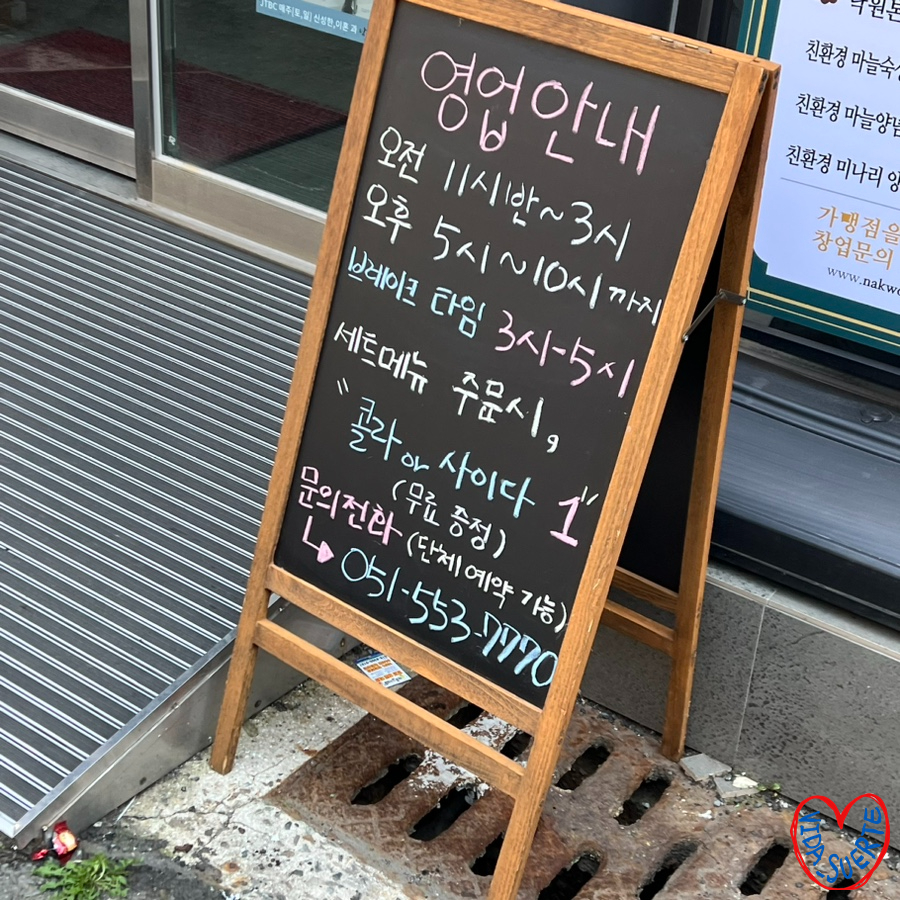 JTBC 매주(토,일) 신성한,이혼 과
영업안내
오전 11시반~3시
오후 5시~10시까지
브레이크 타임 3시-5시
세트메뉴 주문시,
"콜라 or 사이다 1"
(무료 증정)
문의전화 (단체 예약 가능)
051-553-7770
친환경 마늘숙성
친환경 마늘양념
친환경 미나리 양
가맹점을
창업문의
www.nakwo
VIDA SUERTE